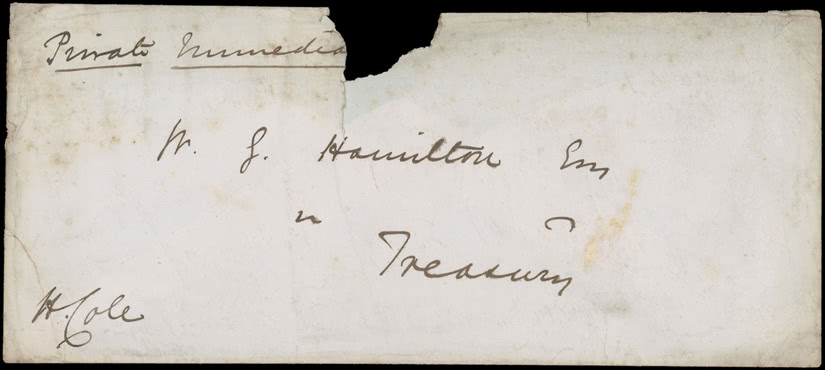 Private Immedia
W. G. Hamilton Esq
"
Treasury
H. Cole